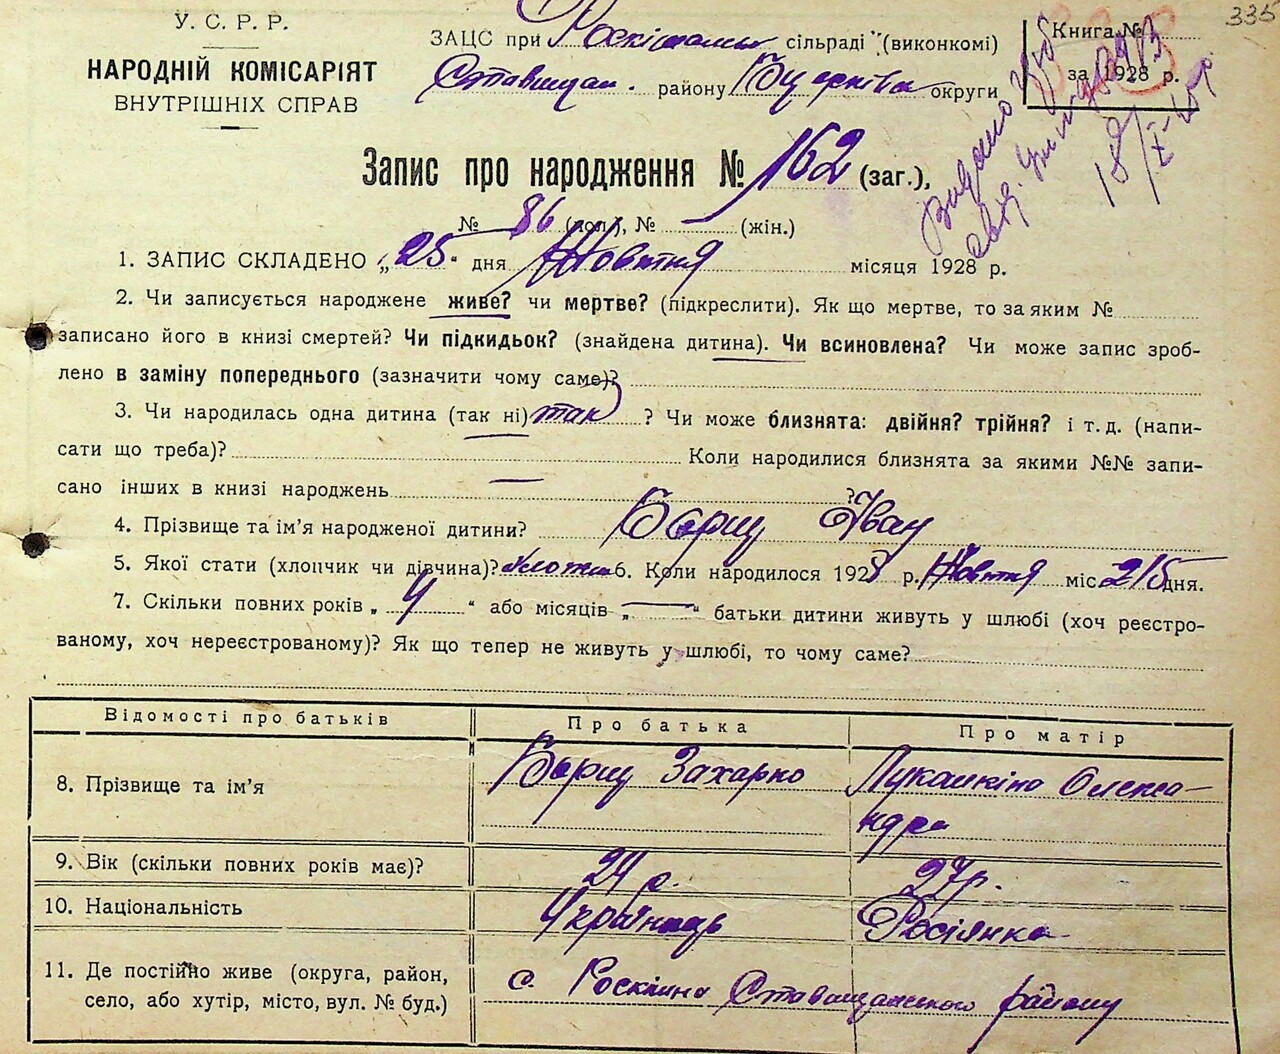 335
У. С. Р. Р.
НАРОДНІЙ КОМІСАРІЯТ
ВНУТРІШНІХ СПРАВ
ЗАЦС при сільраді (виконкомі)
Ставищан. району округи
Книга №
за 1928 р.
Видано
18/I-
Запис про народження № 162 (заг.),
№ 86 (чол.), № — (жін.)
1. ЗАПИС СКЛАДЕНО „25“ дня Жовтня місяця 1928 р.
2. Чи записується народжене живе? чи мертве? (підкреслити). Як що мертве, то за яким №
записано його в книзі смертей? Чи підкидьок? (знайдена дитина). Чи всиновлена? Чи може запис зроб-
лено в заміну попереднього (зазначити чому саме)?
3. Чи народилась одна дитина (так ні) так ? Чи може близнята: двійня? трійня? і т. д. (напи-
сати що треба)? Коли народилися близнята за якими №№ запи-
сано інших в книзі народжень ?
4. Прізвище та ім’я народженої дитини? Борщ Іван
5. Якої стати (хлопчик чи дівчина)? 6. Коли народилося 1928 р. Жовтня міс. 215 дня.
7. Скільки повних років „ 4 “ або місяців „ — “ батьки дитини живуть у шлюбі (хоч реєстро-
ваному, хоч нереєстрованому)? Як що тепер не живуть у шлюбі, то чому саме?
Відомості про батьків Про батька Про матір
8. Прізвище та ім’я Борщ Захарко Лукашкіна Олекса-
ндра
9. Вік (скільки повних років має)? 24 р. 27 р.
10. Національність Українець Росіянка
11. Де постійно живе (округа, район,
село, або хутір, місто, вул. № буд.) с. Роскішна Ставищанського району